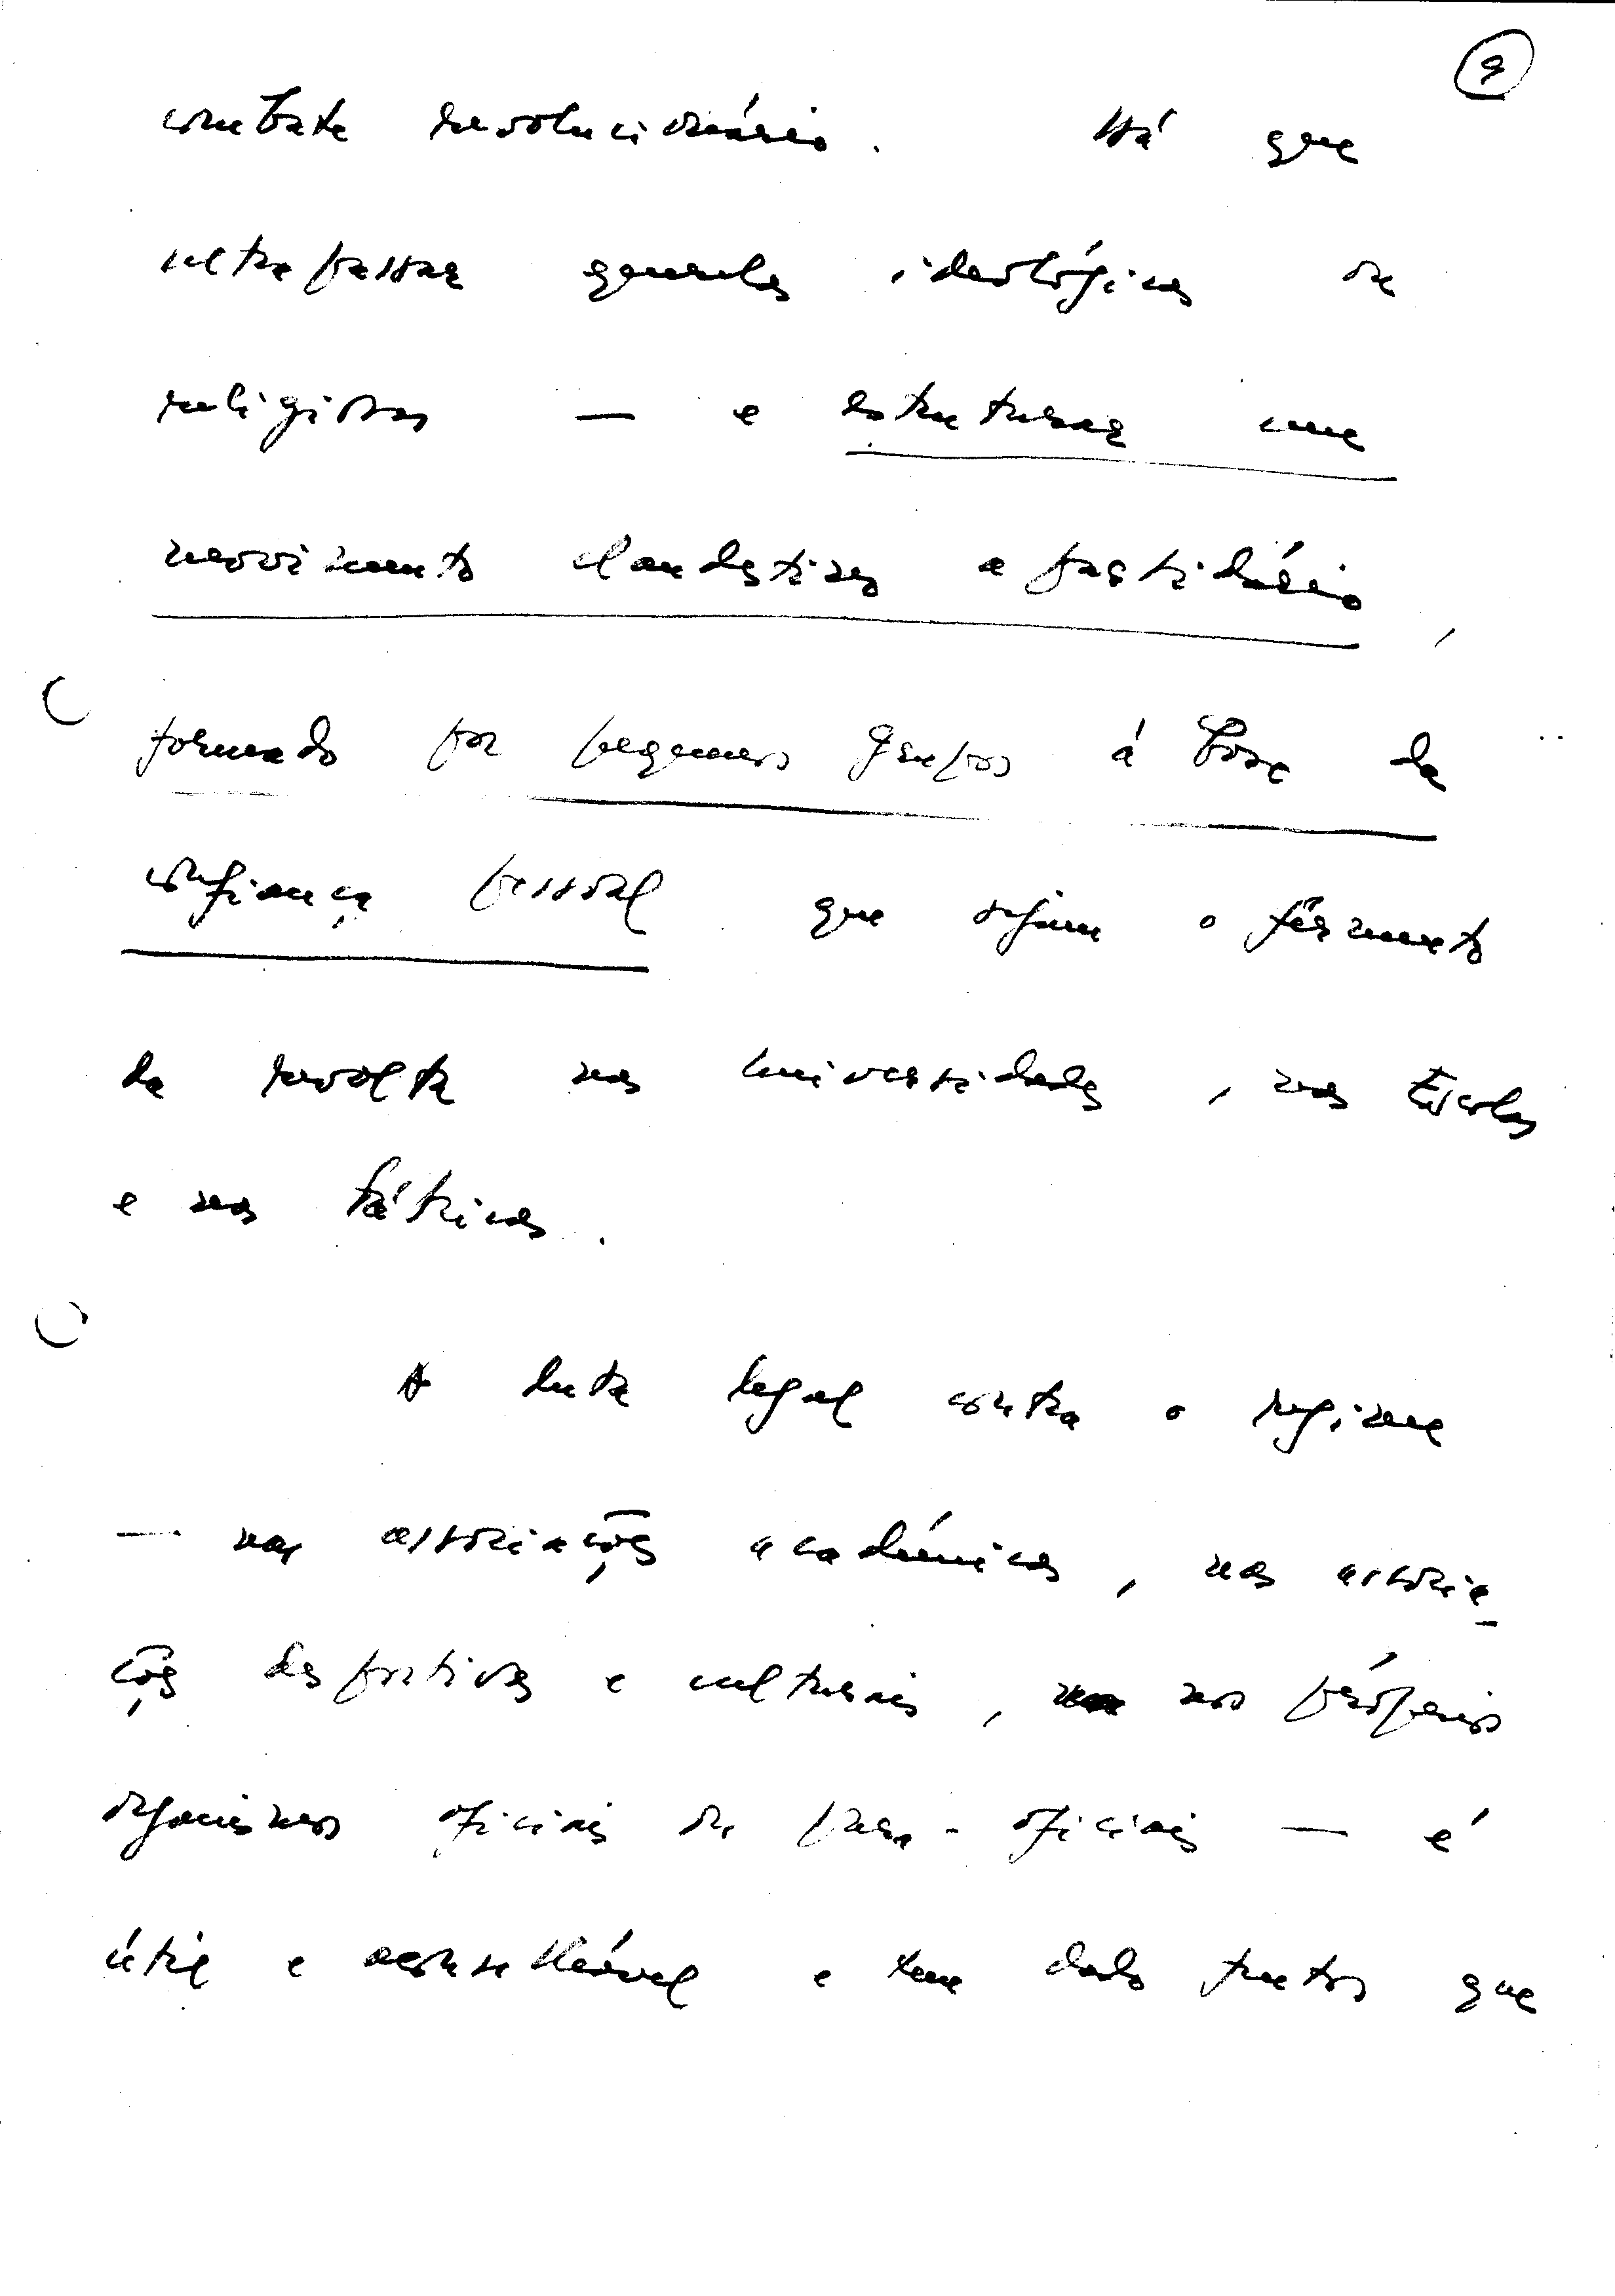 9
combate revolucionário. Há que
ultrapassar querelas ideológicas ou
religiosas — e estruturar um
movimento clandestino apartidário,
formado por pequenos grupos à base da
confiança pessoal que sejam o fermento
da revolta nas Universidades, nas Escolas
e nas Fábricas.
A luta legal contra o regime
— nas associações académicas, nas associa-
ções desportivas e culturais, nos próprios
organismos oficiais ou para-oficiais — é
útil e aconselhável e tem dado frutos que